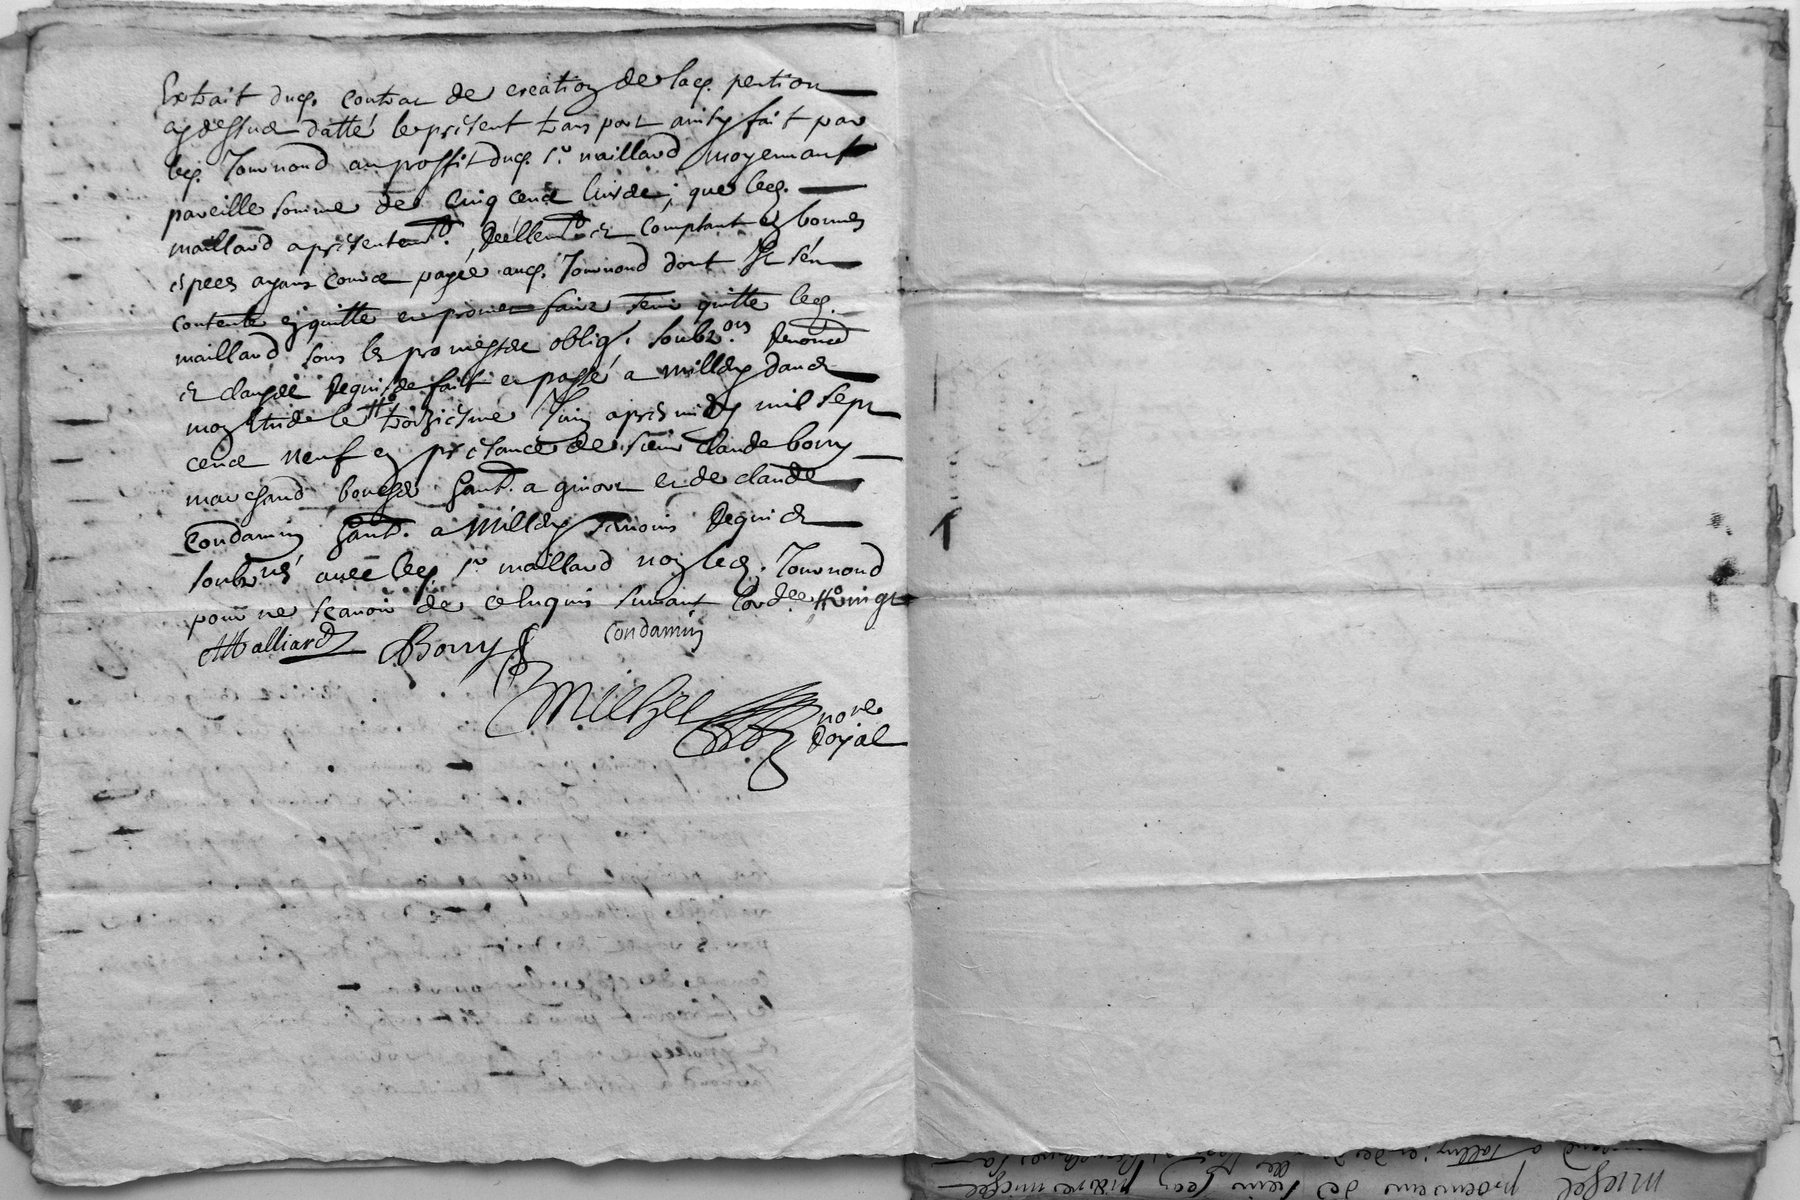 Extrait dud. contrat de creation de lad. pention
cy dessus datté le présent transport ainsy fait par
led. Tournond au proffit dud. Sr. maillard moyennant
pareille somme de cinq cens livres, que led.
maillard a présentemt. Réellemt. et comptant en bonnes
espèces ayans cours payée aud. Tournond dont Il s'en
contente en quitte et promet faire tenir quitte led.
maillard sous les promesses oblig. soubz.ons Renonce
et clauses Requises fait et passé a milly dans
le troiziesme Juin apres midy mil sept
cens neuf en présance de sieur Claude borry
marchand boucher habt. a et de claude
Condamin habt. a Milly témoins Requis et
soubznés avec led. Sr maillard non led. Tournond
pour ne sçavoir de ce enquis suivant l'ordce vingt
Malliard Borry Condamin
Michel nore
Royal
michel procureur de sieur pierre michel